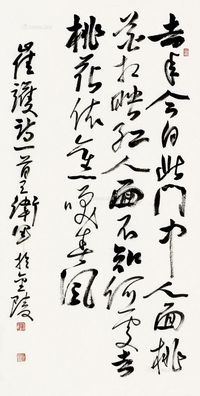 去年今日此门中人面桃
花相映红人面不知何处去
桃花依旧笑春风
崔护诗一首卫写于金陵